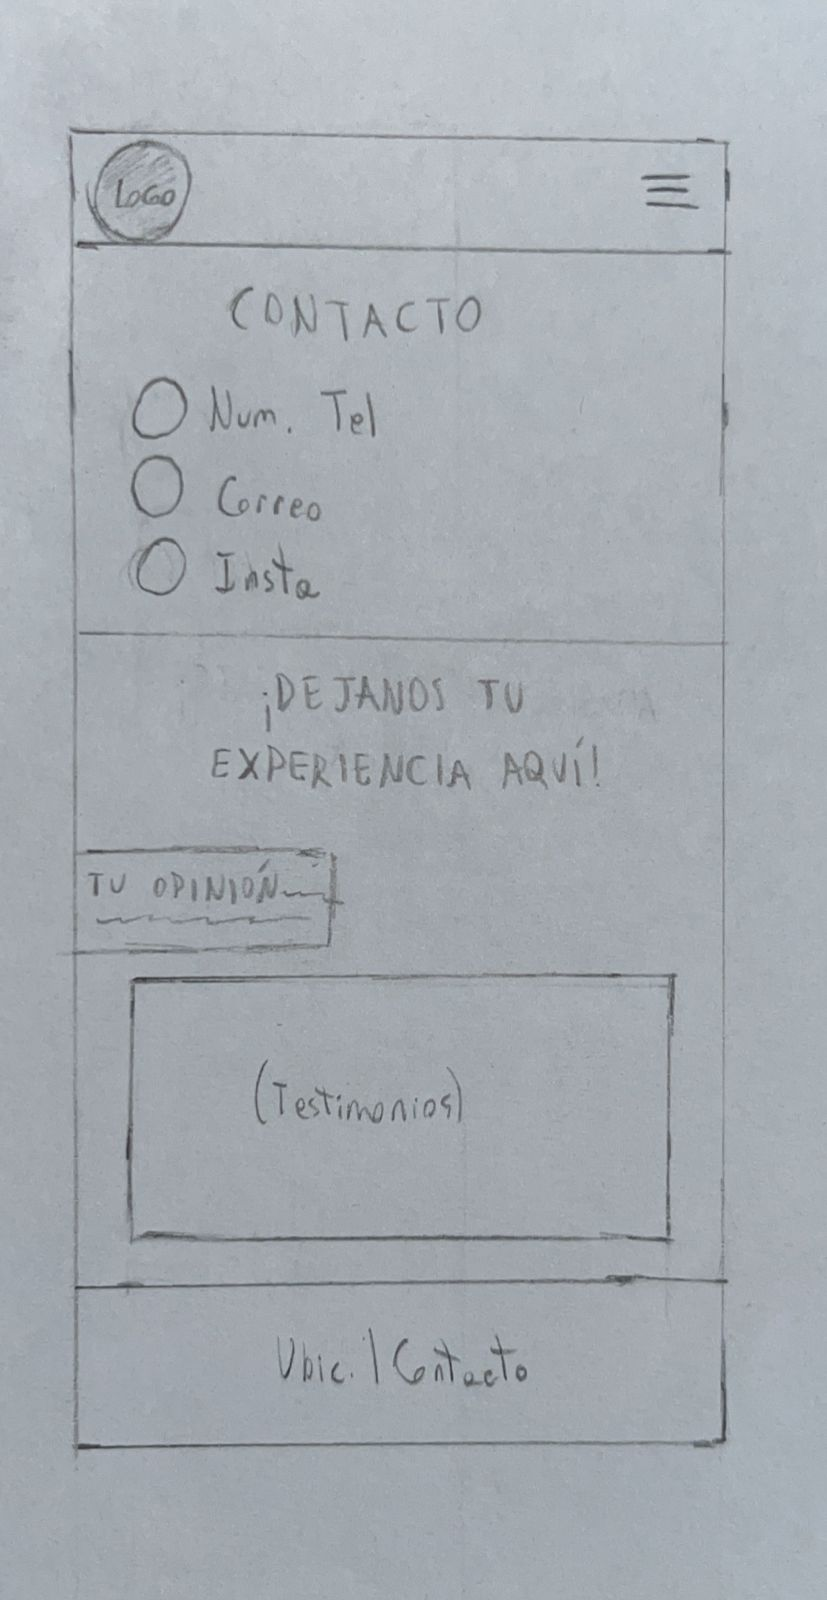 LOGO
CONTACTO
Num. Tel
Correo
Insta
¡DEJANOS TU
EXPERIENCIA AQUÍ!
TU OPINIÓN
(Testimonios)
Ubic. | Contacto